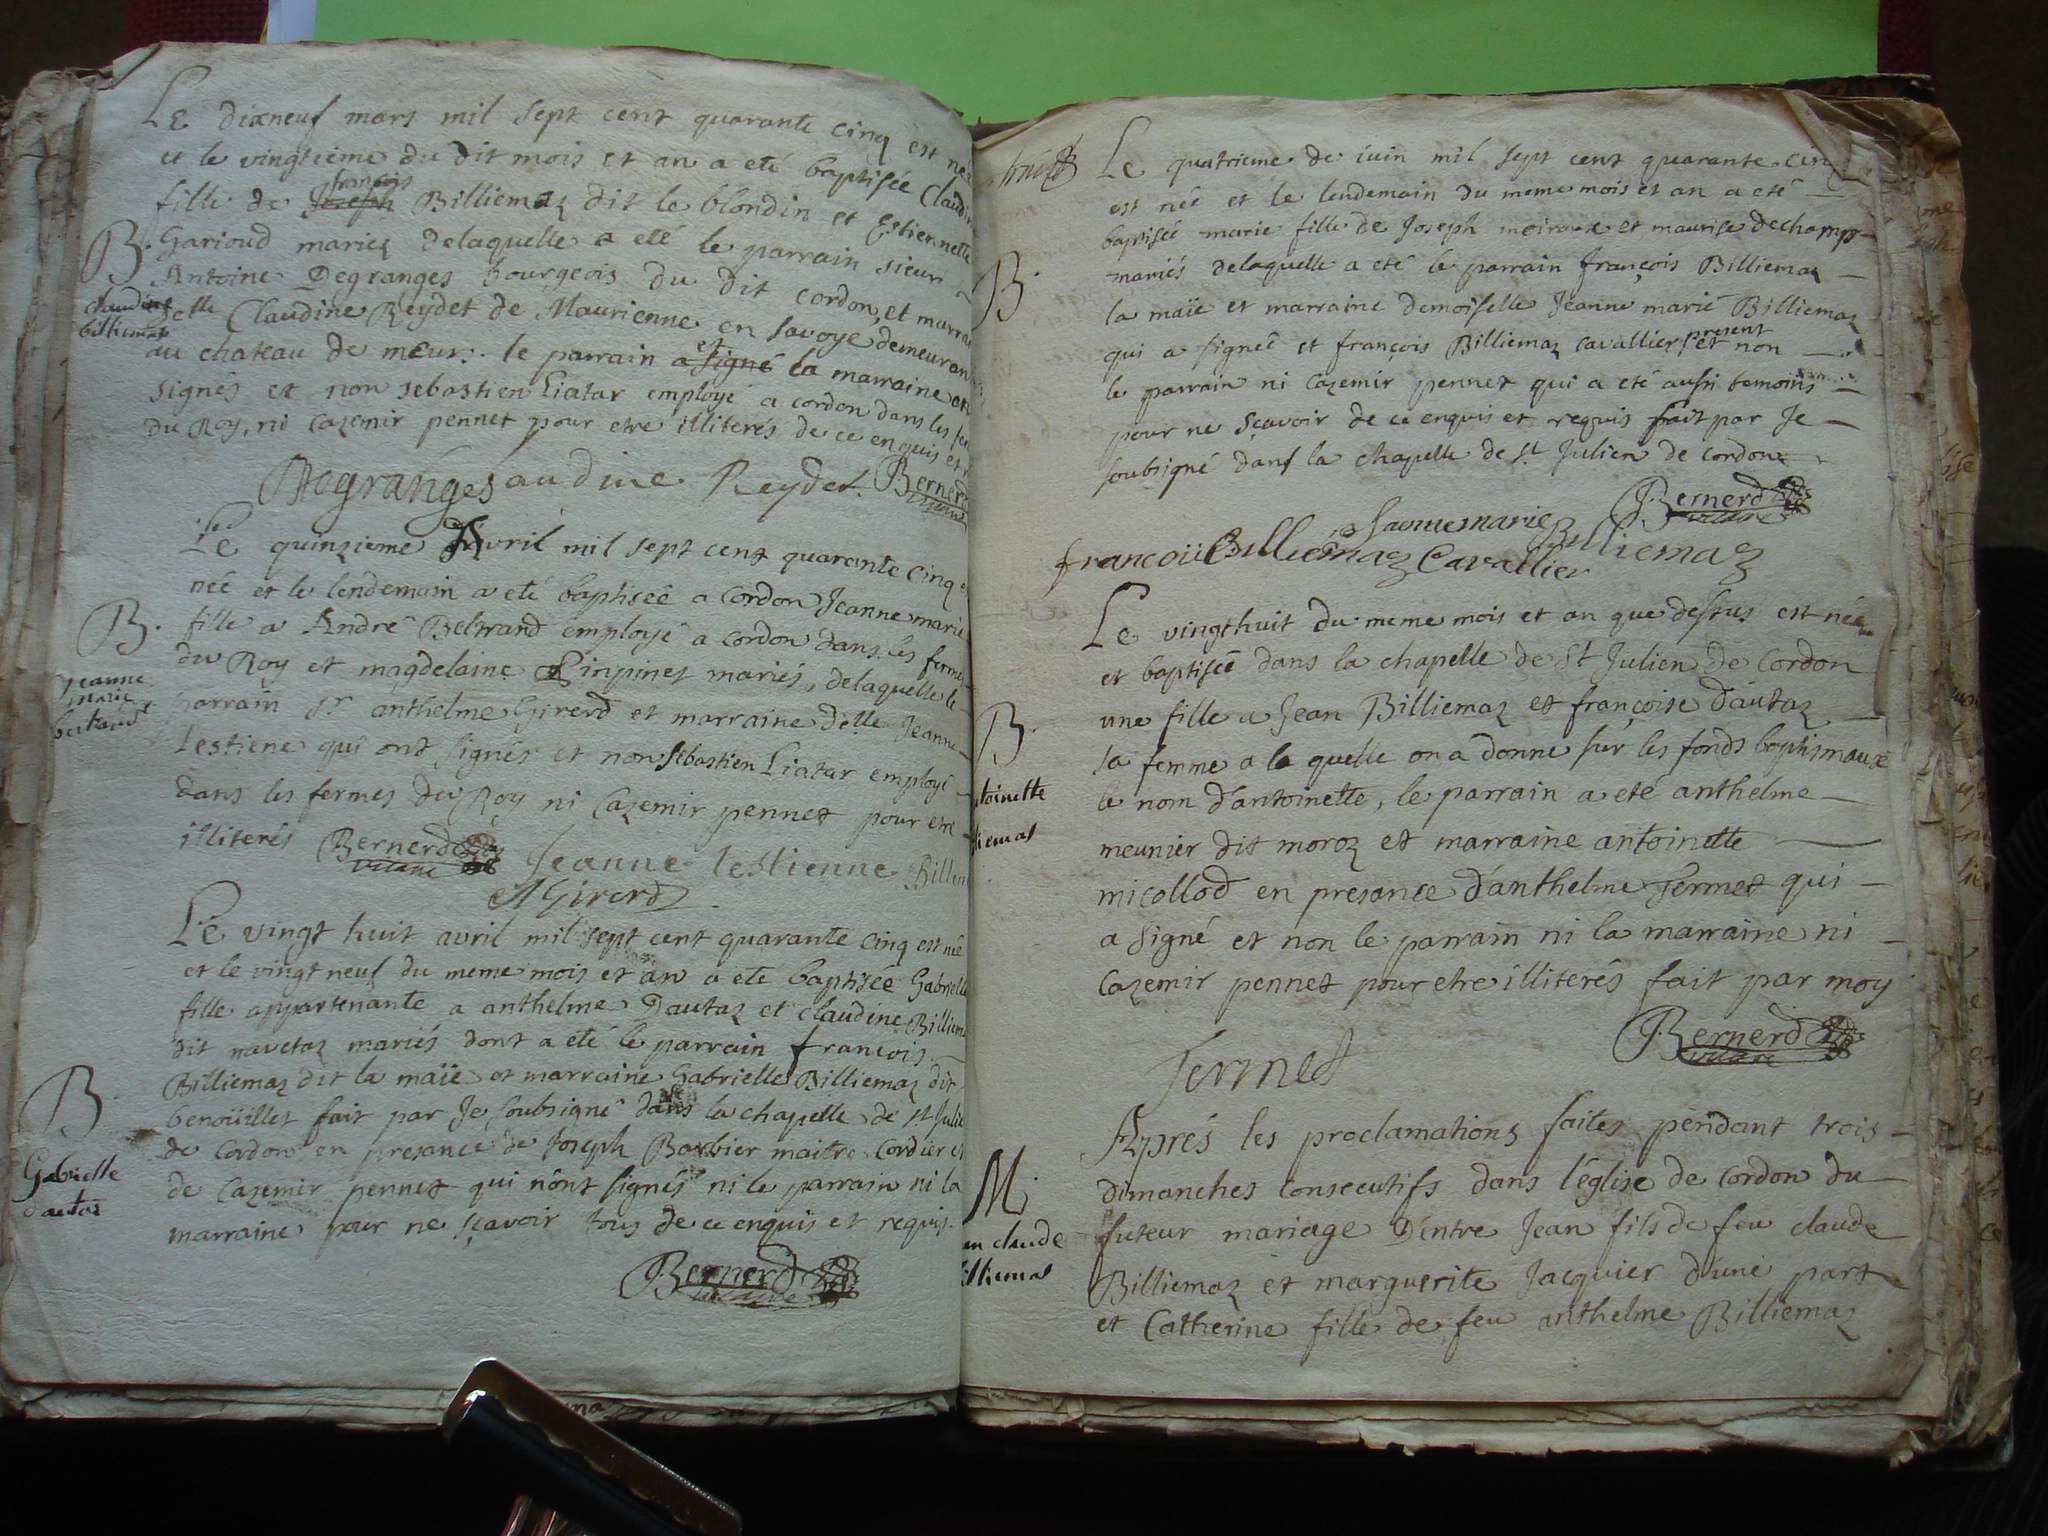 Le dixneuf mars mil sept cent quarante cinq est née
et le vingtieme du dit mois et an a eté baptisée Claudine
françois
fille de Joseph Billiemaz dit le blondin et Estiennette
B.
Garioud mariez delaquelle a eté le parrain sieur
Antoine Degranges bourgeois du dit cordon, et marraine
claudine
billiemas
delle Claudine Reydet de Maurienne en Savoye demeurant
au chateau de meur: le parrain a signé et la marraine ont
signés et non sebastien Liatar employé a cordon dans les fermes
du Roy, ni Cazemir pennet pour etre illiterés de ce enquis et
Degranges audine Reydet. Bernerd
vicaire
Le quinzieme Avril mil sept cent quarante cinq
née et le lendemain a eté baptisée a Cordon Jeanne marie
B.
fille a André Beltrand employé a cordon dans les fermes
du Roy et magdelaine Pinpinet mariés, delaquelle le
jeanne
marie
bertrand
parrain sr anthelme Girerd et marraine delle Jeanne
Lestiene qui ont signés et non sébastien Liatar employé
dans les fermes du Roy ni Cazemir pennet pour etre
illiterés Bernerd
vicaire
Jeanne lestienne
A Girerd
Le vingt huit avril mil sept cent quarante cinq est née
et le vingt neuf du meme mois et an a eté baptisée Gabrielle
fille appartenante a anthelme Dautaz et claudine Billiemaz
dit navetaz mariés dont a eté le parrain françois
B
Billiemaz dit la maïe et marraine Gabrielle Billiemaz dit
benoüillet fait par Je soubsigné dans la chapelle de st Julien
de Cordon en presance de Joseph Barbier maitre Cordier et
Gabrielle
dautas
de Cazemir pennet qui n'ont signés ni le parrain ni la
marraine pour ne sçavoir tous de ce enquis et requis.
Bernerd
vicaire
Le quatrieme de iuin mil sept cent quarante cinq
est née et le lendemain du meme mois et an a eté
baptisée marie fille de Joseph moiroux et maurise dechamp
B.
mariés delaquelle a eté le parrain françois Billiemaz
la maïe et marraine demoiselle Jeanne marie Billiemaz
present
qui a signée et françois Billiemaz cavallier et non
le parrain ni Cazemir pennet qui a eté aussi temoins
pour ne sçavoir de ce enquis et requis fait par Je
soubsigné dans la chapelle de st Julien de cordon
Bernerd
vicaire
Jeanne marie Billiemaz
françois Billiemaz Cavallier
Le vingthuit du meme mois et an que dessus est née
et baptisée dans la chapelle de St Julien de Cordon
B.
une fille a Jean Billiemaz et françoise d'autaz
sa femme a la quelle on a donne sur les fonds baptismaux
toinette
liemas
le nom d'antoinette, le parrain a eté anthelme
meunier dit moroz et marraine antoinette
micollod en presance d'anthelme fermet qui
a signé et non le parrain ni la marraine ni
Cazemir pennet pour etre illiterés fait par moy
Bernerd
vicaire
fermet
M.
Aprés les proclamations faites pendant trois
dimanches consecutifs dans l'église de Cordon du
an claude
illiemas
futeur mariage D'entre Jean fils de feu claude
Billiemaz et marguerite Jacquier d'une part
et Catherine fille de feu anthelme Billiemaz